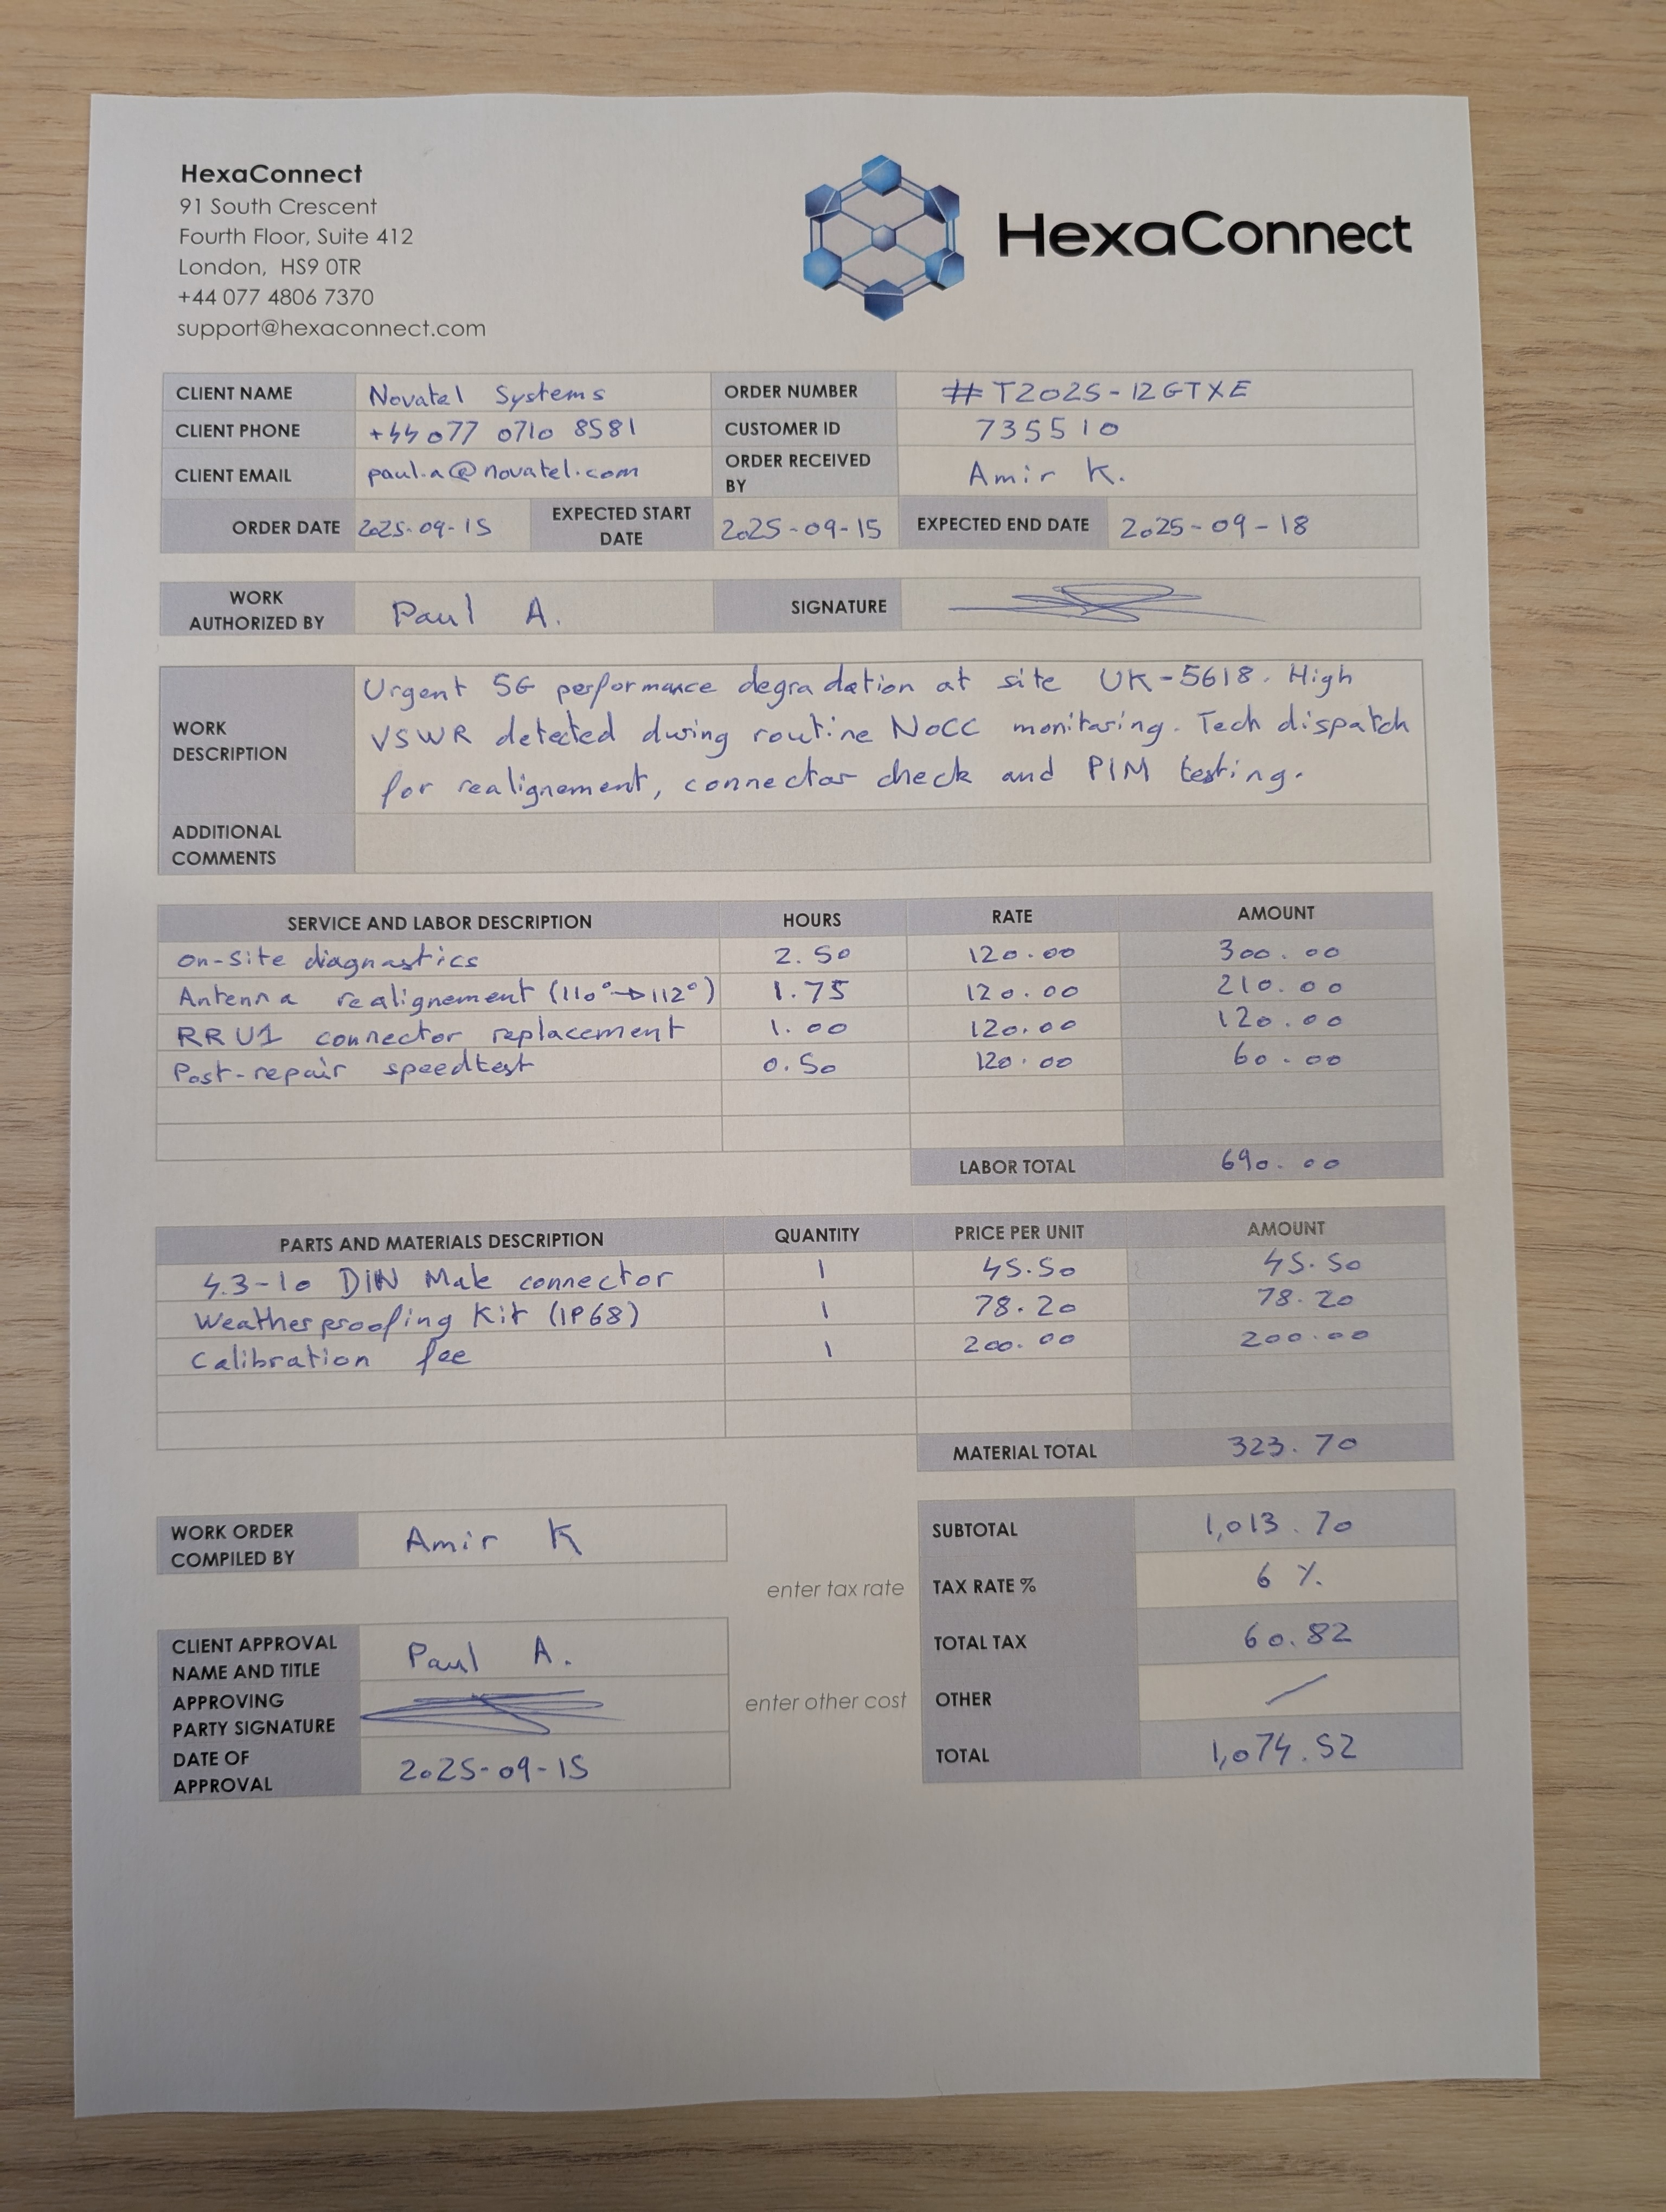 HexaConnect
91 South Crescent
Fourth Floor, Suite 412
London, HS9 0TR
+44 077 4806 7370
support@hexaconnect.com
HexaConnect
CLIENT NAME Novatel Systems ORDER NUMBER #T2025-12GTXE
CLIENT PHONE +44 077 0710 8581 CUSTOMER ID 735510
CLIENT EMAIL paul.a@novatel.com ORDER RECEIVED BY Amir K.
ORDER DATE 2025-09-15 EXPECTED START DATE 2025-09-15 EXPECTED END DATE 2025-09-18
WORK AUTHORIZED BY Paul A. SIGNATURE
WORK DESCRIPTION
Urgent 5G performance degradation at site UK-5618. High
VSWR detected during routine NOCC monitoring. Tech dispatch
for realignement, connector check and PIM testing.
ADDITIONAL COMMENTS
SERVICE AND LABOR DESCRIPTION HOURS RATE AMOUNT
On-site diagnastics 2.50 120.00 300.00
Antenna realignement (110°→112°) 1.75 120.00 210.00
RRU1 connector replacement 1.00 120.00 120.00
Post-repair speedtest 0.50 120.00 60.00
LABOR TOTAL 690.00
PARTS AND MATERIALS DESCRIPTION QUANTITY PRICE PER UNIT AMOUNT
4.3-10 DIN Male connector 1 45.50 45.50
Weatherproofing Kit (IP68) 1 78.20 78.20
Calibration fee 1 200.00 200.00
MATERIAL TOTAL 323.70
WORK ORDER COMPILED BY Amir K
SUBTOTAL 1,013.70
enter tax rate TAX RATE % 6 %
CLIENT APPROVAL NAME AND TITLE Paul A.
TOTAL TAX 60.82
APPROVING PARTY SIGNATURE
enter other cost OTHER /
DATE OF APPROVAL 2025-09-15
TOTAL 1,074.52